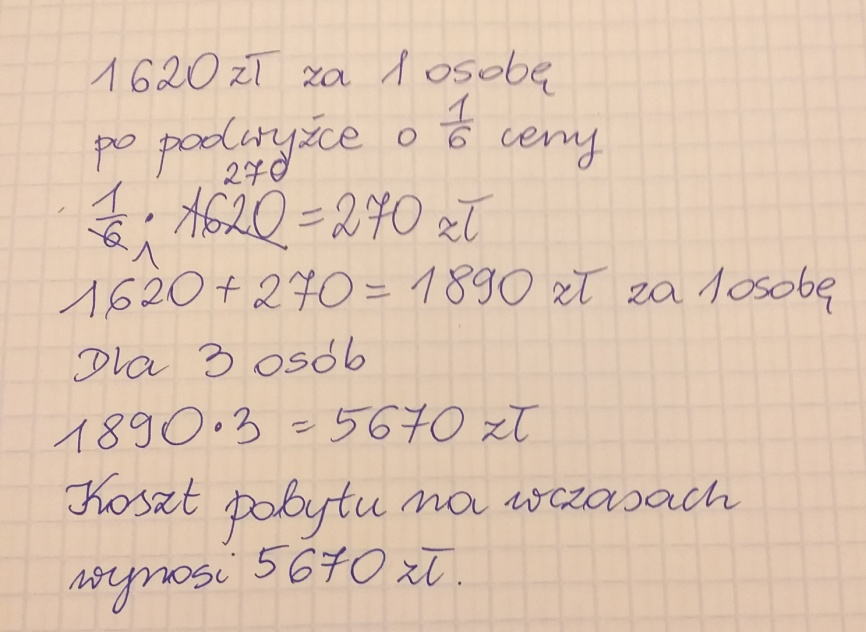 1620 zł za 1 osobę
po podwyżce o 1/6 ceny
270
1/6 · 1620 = 270 zł
1
1620 + 270 = 1890 zł za 1 osobę
Dla 3 osób
1890 · 3 = 5670 zł
Koszt pobytu na wczasach
wynosi 5670 zł.